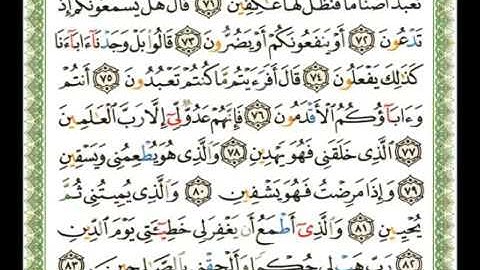 نَعْبُدُ أَصْنَامًا فَنَظَلُّ لَهَا عَٰكِفِينَ ٧١ قَالَ هَلْ يَسْمَعُونَكُمْ إِذْ
تَدْعُونَ ٧٢ أَوْ يَنفَعُونَكُمْ أَوْ يَضُرُّونَ ٧٣ قَالُوا۟ بَلْ وَجَدْنَآ ءَابَآءَنَا
كَذَٰلِكَ يَفْعَلُونَ ٧٤ قَالَ أَفَرَءَيْتُم مَّا كُنتُمْ تَعْبُدُونَ ٧٥ أَنتُمْ
وَءَابَآؤُكُمُ ٱلْأَقْدَمُونَ ٧٦ فَإِنَّهُمْ عَدُوٌّ لِّىٓ إِلَّا رَبَّ ٱلْعَٰلَمِينَ
٧٧ ٱلَّذِى خَلَقَنِى فَهُوَ يَهْدِينِ ٧٨ وَٱلَّذِى هُوَ يُطْعِمُنِى وَيَسْقِينِ
٧٩ وَإِذَا مَرِضْتُ فَهُوَ يَشْفِينِ ٨٠ وَٱلَّذِى يُمِيتُنِى ثُمَّ
يُحْيِينِ ٨١ وَٱلَّذِىٓ أَطْمَعُ أَن يَغْفِرَ لِى خَطِيٓـَٔتِى يَوْمَ ٱلدِّينِ
٨٢ رَبِّ هَبْ لِى حُكْمًا وَأَلْحِقْنِى بِٱلصَّٰلِحِينَ ٨٣